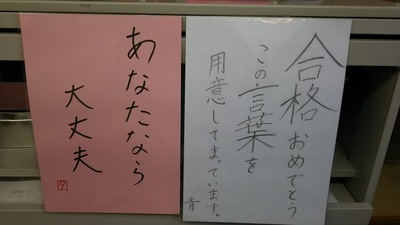 あなたなら
大丈夫
夕
合格おめでとう
この言葉を
用意してまっています。
青